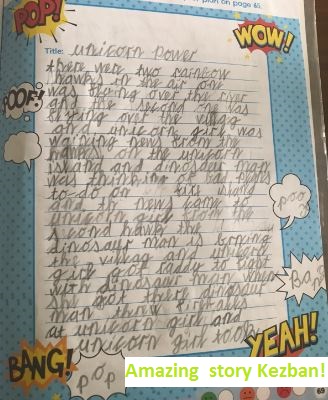 plan on page 65.
POP!
WOW!
Title: unicorn Power
there were two rainbow
hawks in the air one
was flying over the river
and the second one was
flying over the villag
and unicorn girl was
waiting news from the
hawks on the unicorn
island and dinosaur man
was thinking of bad plans
to do on island
and the news came to
unicorn girl from the
second hawk the
dinosaur man is
the villag and unicorn
girl got raddy to
with dinosaur man when
she got there dinosaur
man threw
at unicorn girl and
unicorn girl
POOF!
poo
Ba
BANG!
pop
YEAH!
Amazing story Kezban!
69